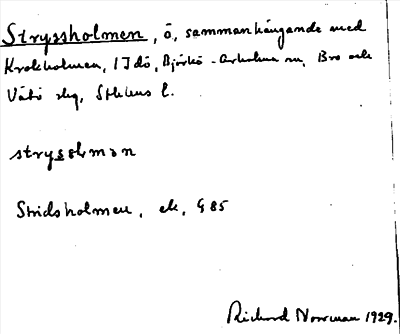 Stryssholmen, ö, sammanhängande med
Krokholmen, i Idö, Björkö-Arholma sn, Bro och
Vätö skg, Sthlms l.
stryssḷmən
Stridsholmen, ek, G 85
Richard Norrman 1929.